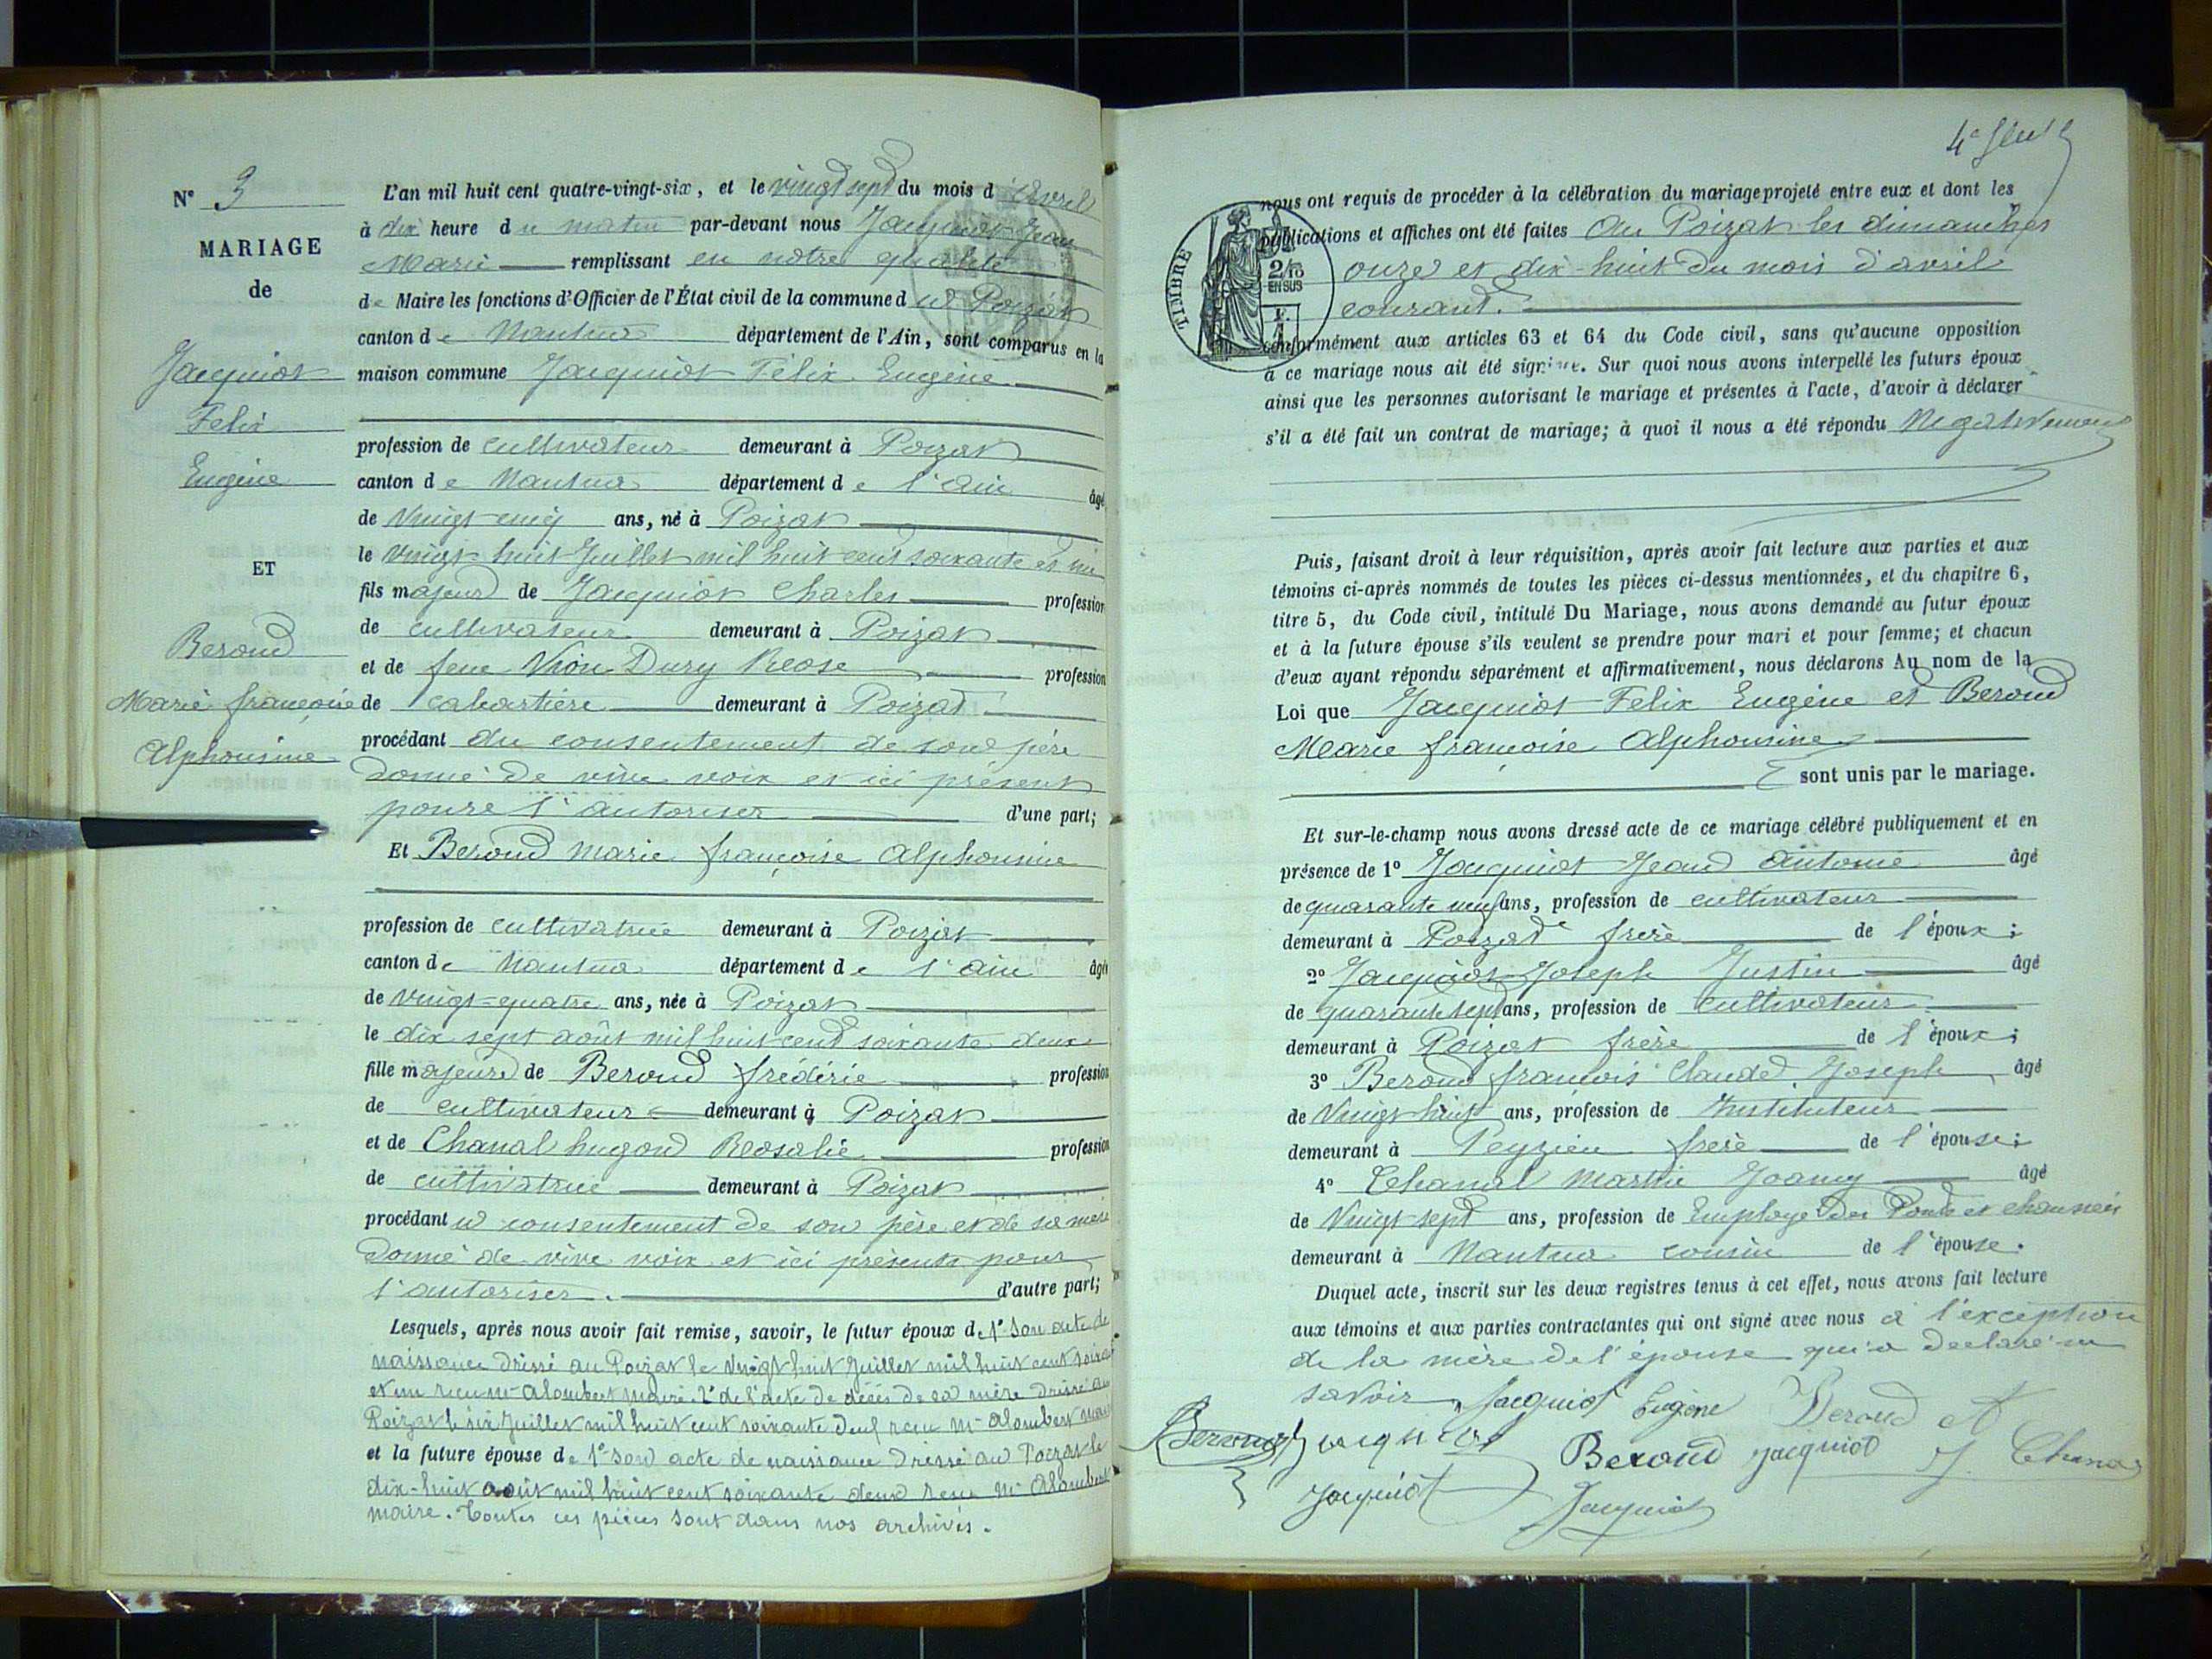 N° 3
MARIAGE
de
Jacquiot
Felix
Eugène
ET
Beroud
Marie françoise
Alphonsine
L'an mil huit cent quatre-vingt-six, et le vingt sept du mois d'Avril
à dix heure du matin par-devant nous Jacquiot Jean
Marie remplissant en notre qualité
de Maire les fonctions d'Officier de l'État civil de la commune du Poizat
canton de Nantua département de l'Ain, sont comparus en la
maison commune Jacquiot Félix Eugène
profession de cultivateur demeurant à Poizat
canton de Nantua département de l'ain âgé
de vingt cinq ans, né à Poizat
le vingt huit Juillet mil huit cent soixante et un
fils majeur de Jacquiot Charles profession
de cultivateur demeurant à Poizat
et de feue Vion Dury Rose profession
de cabartière demeurant à Poizat
procédant du consentement de son père
donné de vive voix et ici présent
pour l'autoriser d'une part;
Et Beroud Marie françoise Alphonsine
profession de cultivatrice demeurant à Poizat
canton de Nantua département de l'ain âgée
de vingt-quatre ans, née à Poizat
le dix sept août mil huit cent soixante deux
fille majeure de Beroud frédéric profession
de cultivateur demeurant à Poizat
et de Chanal hugon Rosalie profession
de cultivatrice demeurant à Poizat
procédant du consentement de son père et de sa mère
donné de vive voix et ici présents pour
l'autoriser. d'autre part;
Lesquels, après nous avoir fait remise, savoir, le futur époux de 1° son acte de
naissance dressé au Poizat le vingt huit Juillet mil huit cent soixante
et un reçu Mr Alombert maire. 2° de l'acte de décès de sa mère dressé au
Poizat le six Juillet mil huit cent soixante reçu Mr Alombert
et la future épouse de 1° son acte de naissance dressé au Poizat le
dix-huit août mil huit cent soixante deux reçu Mr Alombert
maire. Toutes ces pièces sont dans nos archives.
4e
TIMBRE
2/10
EN SUS
nous ont requis de procéder à la célébration du mariage projeté entre eux et dont les
publications et affiches ont été faites au Poizat les dimanches
onze et dix-huit du mois d'avril
courant.
conformément aux articles 63 et 64 du Code civil, sans qu'aucune opposition
à ce mariage nous ait été signifiée. Sur quoi nous avons interpellé les futurs époux
ainsi que les personnes autorisant le mariage et présentes à l'acte, d'avoir à déclarer
s'il a été fait un contrat de mariage; à quoi il nous a été répondu Négativement
Puis, faisant droit à leur réquisition, après avoir fait lecture aux parties et aux
témoins ci-après nommés de toutes les pièces ci-dessus mentionnées, et du chapitre 6,
titre 5, du Code civil, intitulé Du Mariage, nous avons demandé au futur époux
et à la future épouse s'ils veulent se prendre pour mari et pour femme; et chacun
d'eux ayant répondu séparément et affirmativement, nous déclarons Au nom de la
Loi que Jacquiot Felix Eugène et Beroud
Marie françoise Alphonsine
sont unis par le mariage.
Et sur-le-champ nous avons dressé acte de ce mariage célébré publiquement et en
présence de 1° Jacquiot Jean Antoine âgé
de quarante neuf ans, profession de cultivateur
demeurant à Poizat frère de l'époux;
2° Jacquiot Joseph Justin âgé
de quarante sept ans, profession de cultivateur
demeurant à Poizat frère de l'époux;
3° Beroud françois Claude Joseph âgé
de Vingt huit ans, profession de Instituteur
demeurant à Peyzieu frère de l'épouse;
4° Chanal Marthe Joany âgé
de Vingt sept ans, profession de Employé des Ponts et chaussées
demeurant à Nantua cousin de l'épouse.
Duquel acte, inscrit sur les deux registres tenus à cet effet, nous avons fait lecture
aux témoins et aux parties contractantes qui ont signé avec nous à l'exception
de la mère de l'épouse qui a déclaré ne
savoir. Jacquiot Eugène Beroud A
Beroud Jacquiot Beroud Jacquiot J. Chanal
Jacquiot Jacquiot